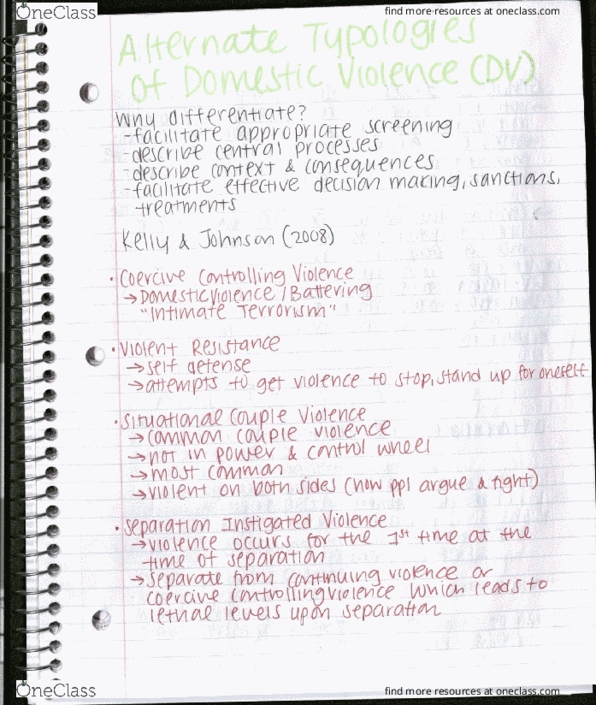 OneClass
find more resources at oneclass.com
Alternate Typologies
of Domestic Violence (DV)
Why differentiate?
-facilitate appropriate screening
-describe central processes
-describe context & consequences
-facilitate effective decision making, sanctions,
treatments
Kelly & Johnson (2008)
· Coercive Controlling Violence
→ Domestic Violence / Battering
"Intimate Terrorism"
· Violent Resistance
→ self defense
→ attempts to get violence to stop, stand up for oneself
· Situational Couple Violence
→ common couple violence
→ not in power & control wheel
→ most common
→ violent on both sides (how ppl argue & fight)
· Separation Instigated Violence
→ violence occurs for the 1st time at the
time of separation
→ separate from continuing violence or
coercive controlling violence which leads to
lethal levels upon separation
OneClass
find more resources at oneclass.com